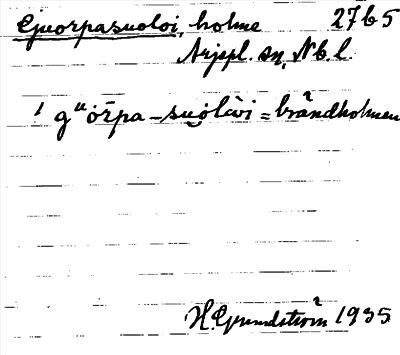 Gjuorpasuoloi, holme 27 b 5
Arjspl. sn, Nb. l.
1 gᵘörpa-suo̯lài = brandholmen
H. Grundström 1935